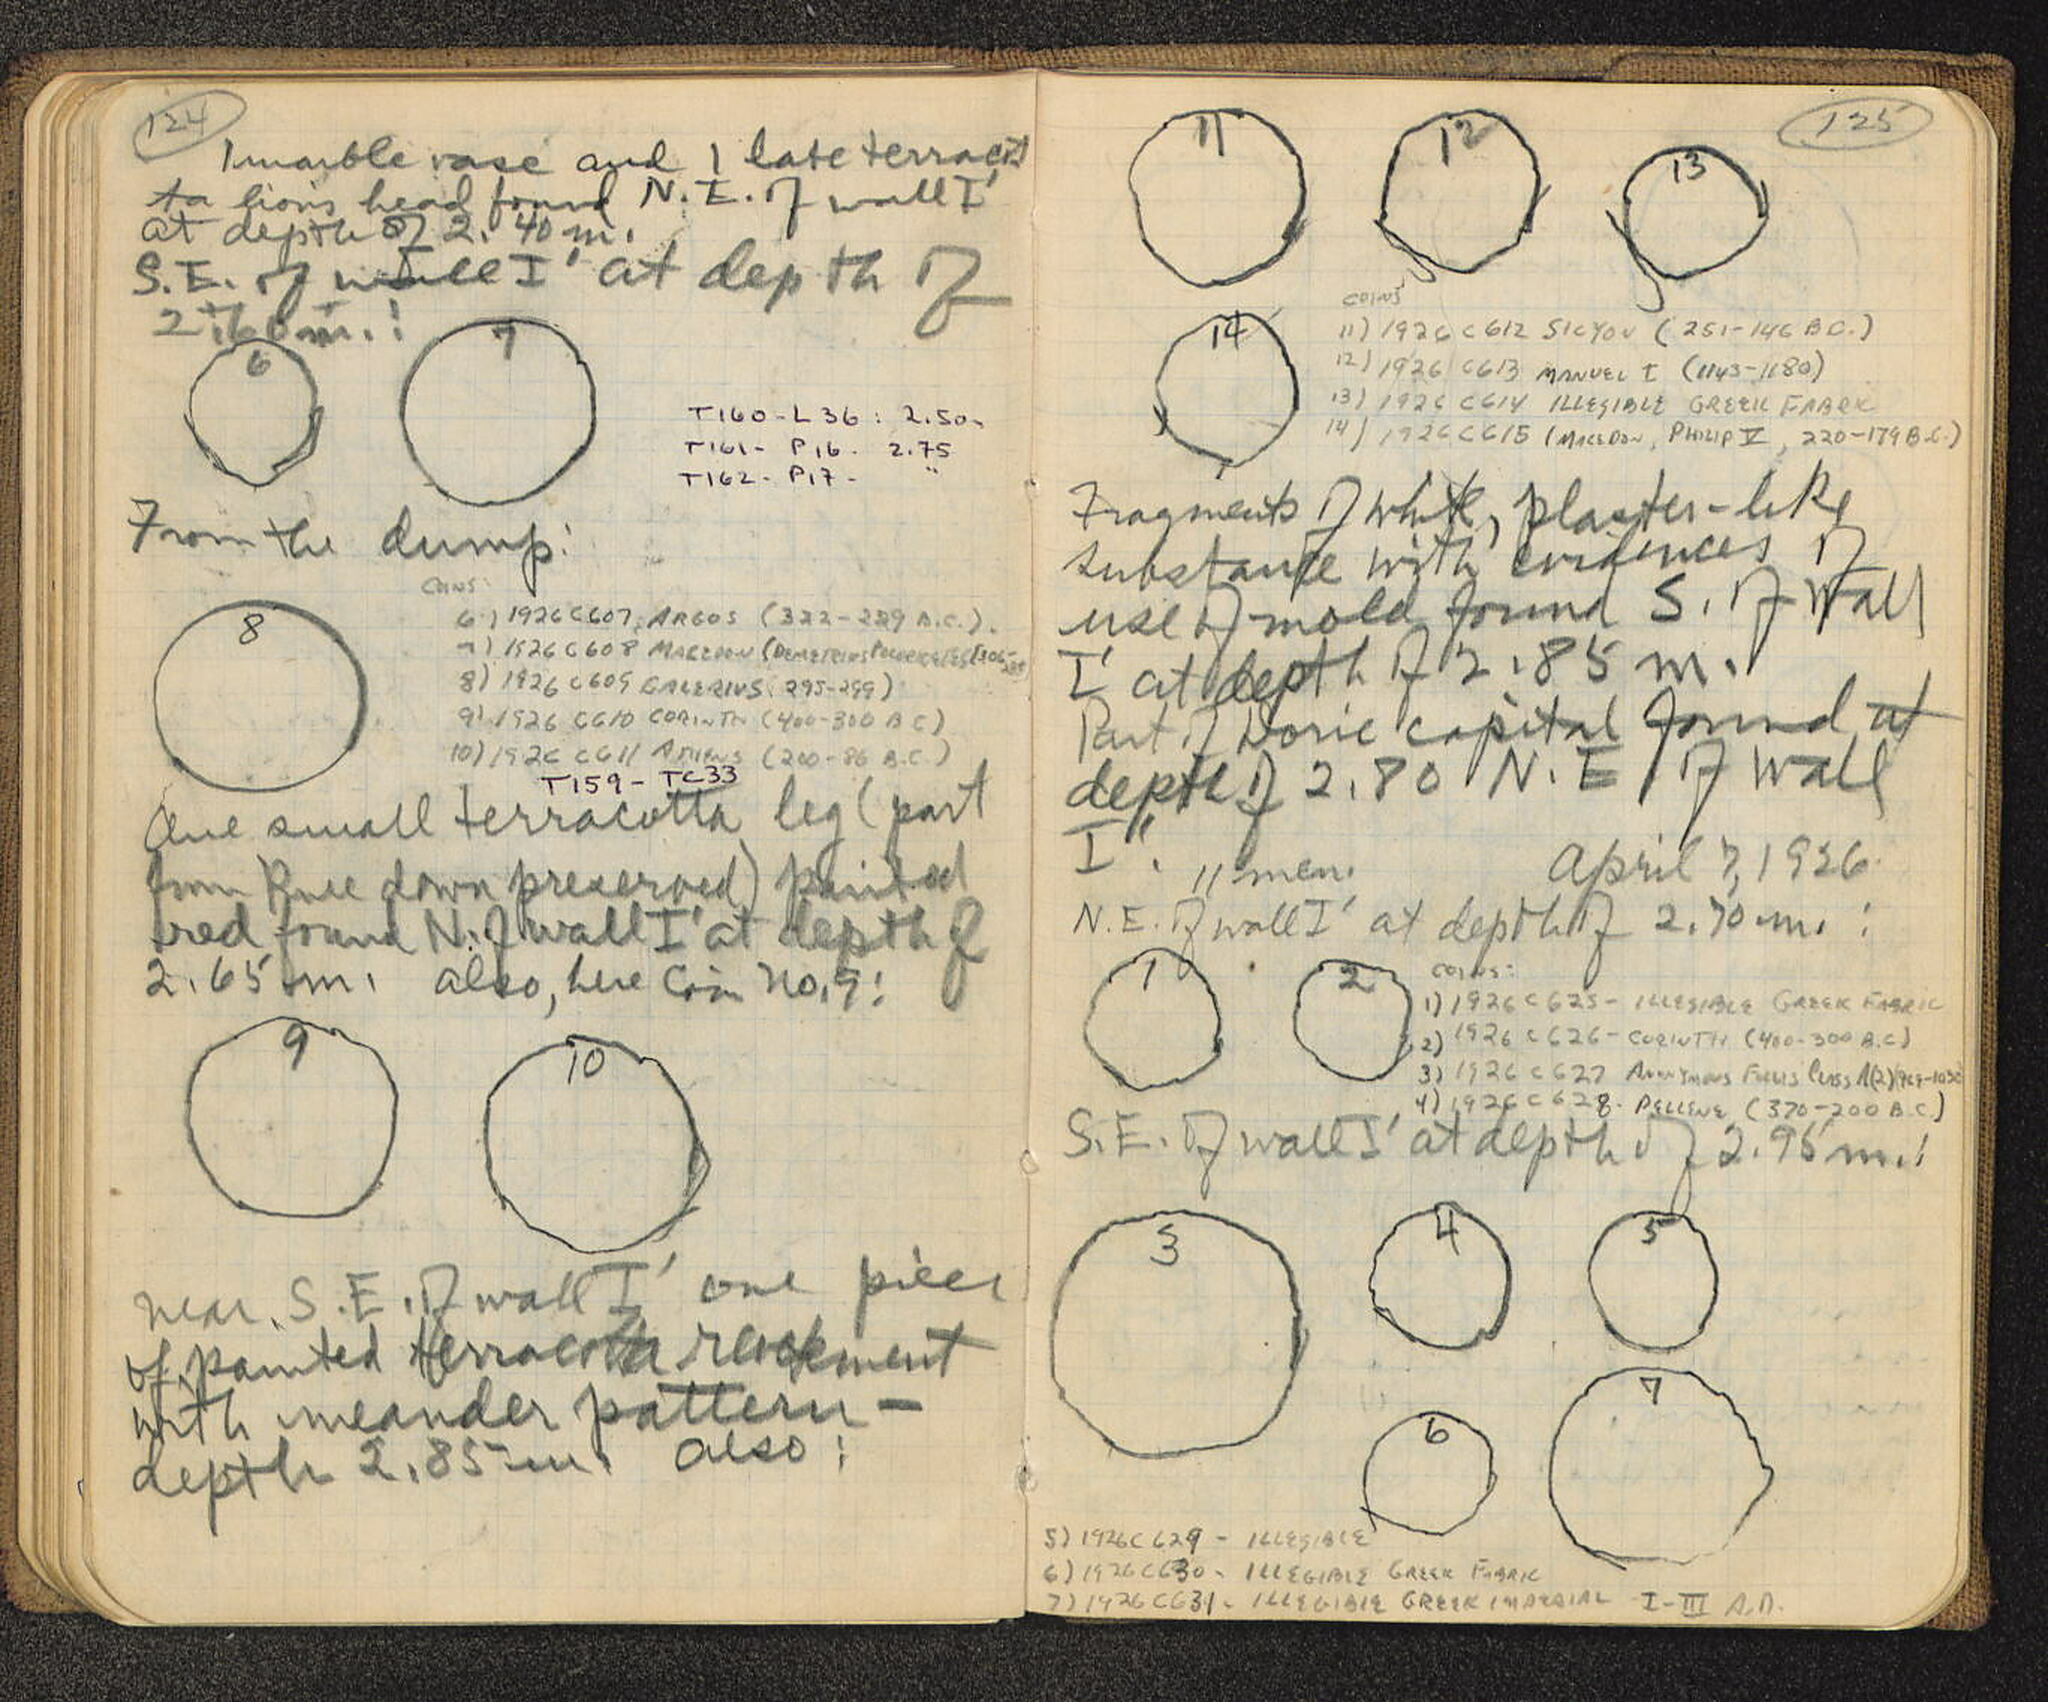 124
1 marble vase and 1 late terracot
ta lion's head found N.E. of wall I'
at depth of 2.40 m.
S.E. of wall I' at depth of
2.60 m.:
6
7
T160 - L36 : 2.50
T161 - P16 - 2.75
T162 - P17 - "
From the dump:
8
COINS:
6) 1926 C607 ARGOS (322-229 B.C.).
7) 1926 C608 MACEDON (DEMETRIUS POLIORKETES
8) 1926 C609 GALERIUS (295-299)
9) 1926 C610 CORINTH (400-300 B C)
10) 1926 C611 ATHENS (200-86 B.C.)
T159 - TC33
One small terracotta leg (part
from knee down preserved) painted
red found N. of wall I' at depth of
2.65 m. also, here Coin no. 9:
9
10
near S.E. of wall I' one piece
of painted terracotta revetment
with meander pattern -
depth 2.85 m. also:
125
11
12
13
14
COINS
11) 1926 C612 SICYON (251-146 B.C.)
12) 1926 C613 MANUEL I (1143-1180)
13) 1926 C614 ILLEGIBLE GREEK FABRIC
14) 1926 C615 (MACEDON, PHILIP V, 220-179 B.C.)
Fragments of white, plaster-like
substance with evidences of
use of mold found S. of Wall
I' at depth of 2.85 m.
Part of Doric capital found at
depth of 2.80 N.E. of Wall
I".
11 men. April 7, 1926.
N.E. of wall I' at depth of 2.70 m. :
1
2
COINS:
1) 1926 C625 - ILLEGIBLE GREEK FABRIC
2) 1926 C626 - CORINTH (400-300 B.C)
3) 1926 C627 ANONYMOUS FOLLIS CLASS A(2)
4) 1926 C628 - PELLENE (370-200 B.C.)
S.E. of wall I' at depth of 2.95 m.:
3
4
5
6
7
5) 1926 C629 - ILLEGIBLE
6) 1926 C630 - ILLEGIBLE GREEK FABRIC
7) 1926 C631 - ILLEGIBLE GREEK IMPERIAL I-III A.D.